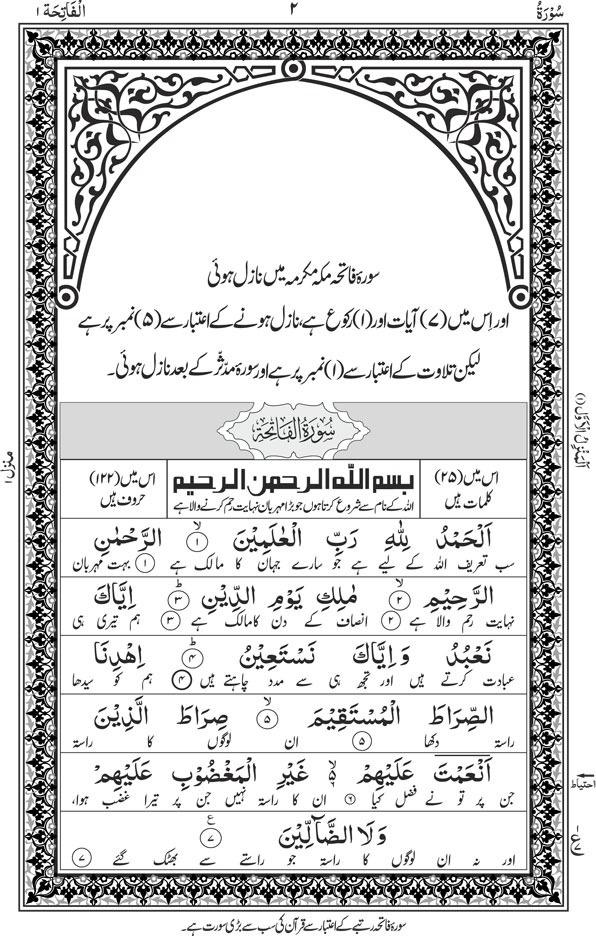 سُوْرَةُ ٢ اَلْفَاتِحَة ١
سورۂ فاتحہ مکہ مکرمہ میں نازل ہوئی
اور اِس میں (۷) آیات اور (۱) رکوع ہے، نازل ہونے کے اعتبار سے (۵) نمبر پر ہے
لیکن تلاوت کے اعتبار سے (۱) نمبر پر ہے اور سورۂ مدثّر کے بعد نازل ہوئی۔
سُوْرَةُ الْفَاتِحَةِ
اس میں (۲۵) کلمات ہیں
بسم اللہ الرحمن الرحیم
اللہ کے نام سے شروع کرتا ہوں جو بڑا مہربان نہایت رحم کرنے والا ہے
اس میں (۱۲۲) حروف ہیں
اَلْحَمْدُ لِلّٰهِ رَبِّ الْعٰلَمِيْنَ ۙ ١ الرَّحْمٰنِ
سب تعریف اللہ کے لیے ہے جو سارے جہان کا مالک ہے ۱ بہت مہربان
الرَّحِيْمِ ۙ ٢ مٰلِكِ يَوْمِ الدِّيْنِ ؕ ٣ اِيَّاكَ
نہایت رحم والا ہے ۲ انصاف کے دن کا مالک ہے ۳ ہم تیری ہی
نَعْبُدُ وَاِيَّاكَ نَسْتَعِيْنُ ؕ ٤ اِهْدِنَا
عبادت کرتے ہیں اور تجھ ہی سے مدد چاہتے ہیں ۴ ہم کو سیدھا
الصِّرَاطَ الْمُسْتَقِيْمَ ۙ ٥ صِرَاطَ الَّذِيْنَ
راستہ دکھا ۵ ان لوگوں کا راستہ
اَنْعَمْتَ عَلَيْهِمْ ۙ۬ غَيْرِ الْمَغْضُوْبِ عَلَيْهِمْ
جن پر تو نے فضل کیا ۶ ان کا راستہ نہیں جن پر تیرا غضب ہوا،
وَلَا الضَّآلِّيْنَ ع ٧
اور نہ ان لوگوں کا راستہ جو راستے سے بھٹک گئے ۷
سورۂ فاتحہ رتبے کے اعتبار سے قرآن کی سب سے بڑی سورت ہے۔
اَلْمَنْزِلُ الْاَوَّل (۱)
احتیاط
منزل ۱